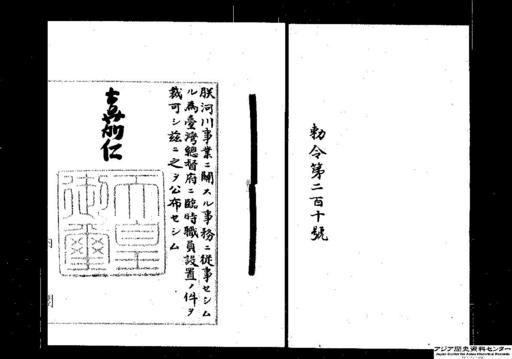 勅令第二百十號
朕河川事業ニ關スル事務ニ從事セシム
ル爲臺灣總督府ニ臨時職員設置ノ件ヲ
裁可シ玆ニ之ヲ公布セシム
嘉仁
天皇
御璽
アジア歴史資料センター
Japan Center for Asian Historical Records